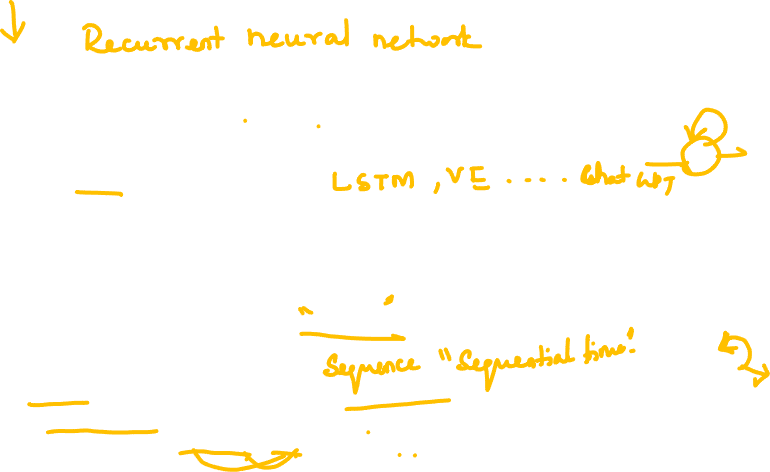 Recurrent neural network
LSTM , VE ..... Chat GPT
Sequence "Sequential time"